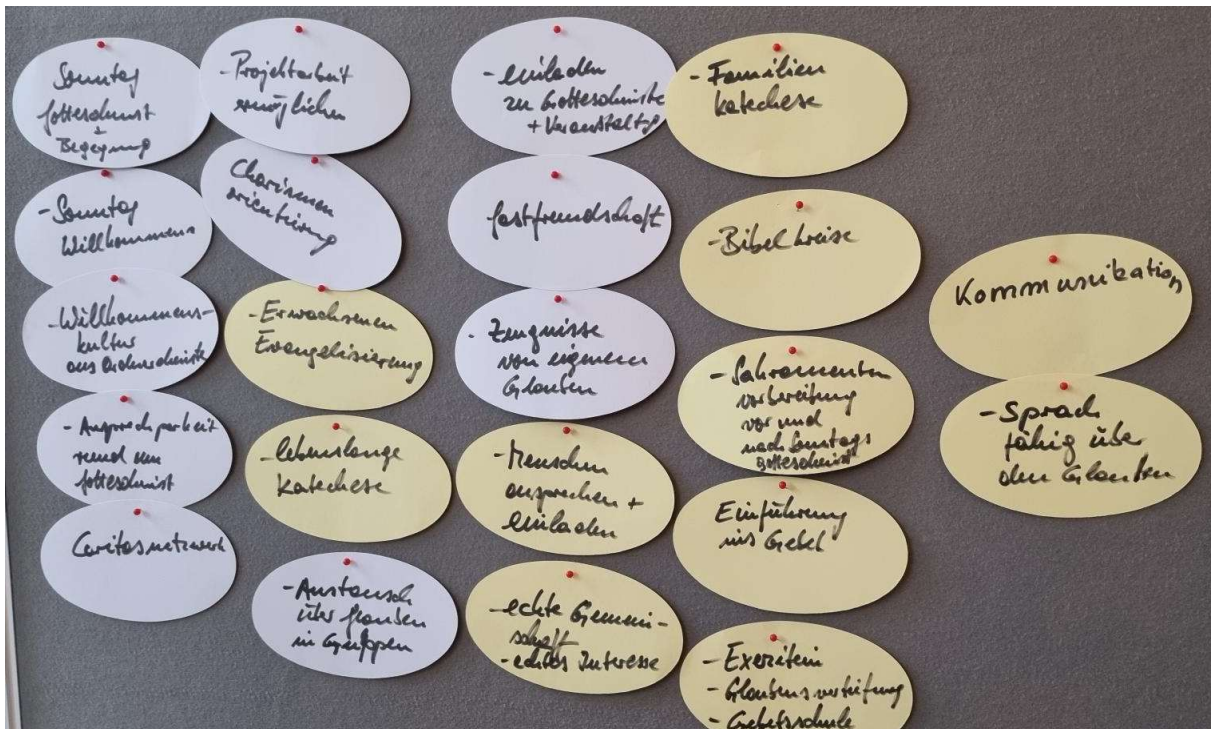 Sonntag
Gottesdienst
+
Begegnung
- Sonntag
Willkommens
- Willkommens-
kultur
aus Ordnerdienste
- Ansprechparkeit
rund um
Gottesdienst
Caritasnetzwerk
- Projektarbeit
ermöglichen
Charismen
orientierung
- Erwachsenen
Evangelisierung
- lebenslange
Katechese
- Austausch
über Glauben
in Gruppen
- einladen
zu Gottesdienste
+ Veranstaltg
Gastfreundschaft
- Zeugnisse
von eigenem
Glauben
- Menschen
ansprechen +
einladen
- echte Gemein-
schaft
- echtes Interesse
- Familien
katechese
- Bibelkreise
- Sakramenten
vorbereitung
vor und
nach Sonntags
Gottesdienst
Einführung
ins Gebet
- Exerzitein
- Glaubensvertiefung
- Gebetsschule
Kommunikation
- Sprach
fähig über
den Glauben